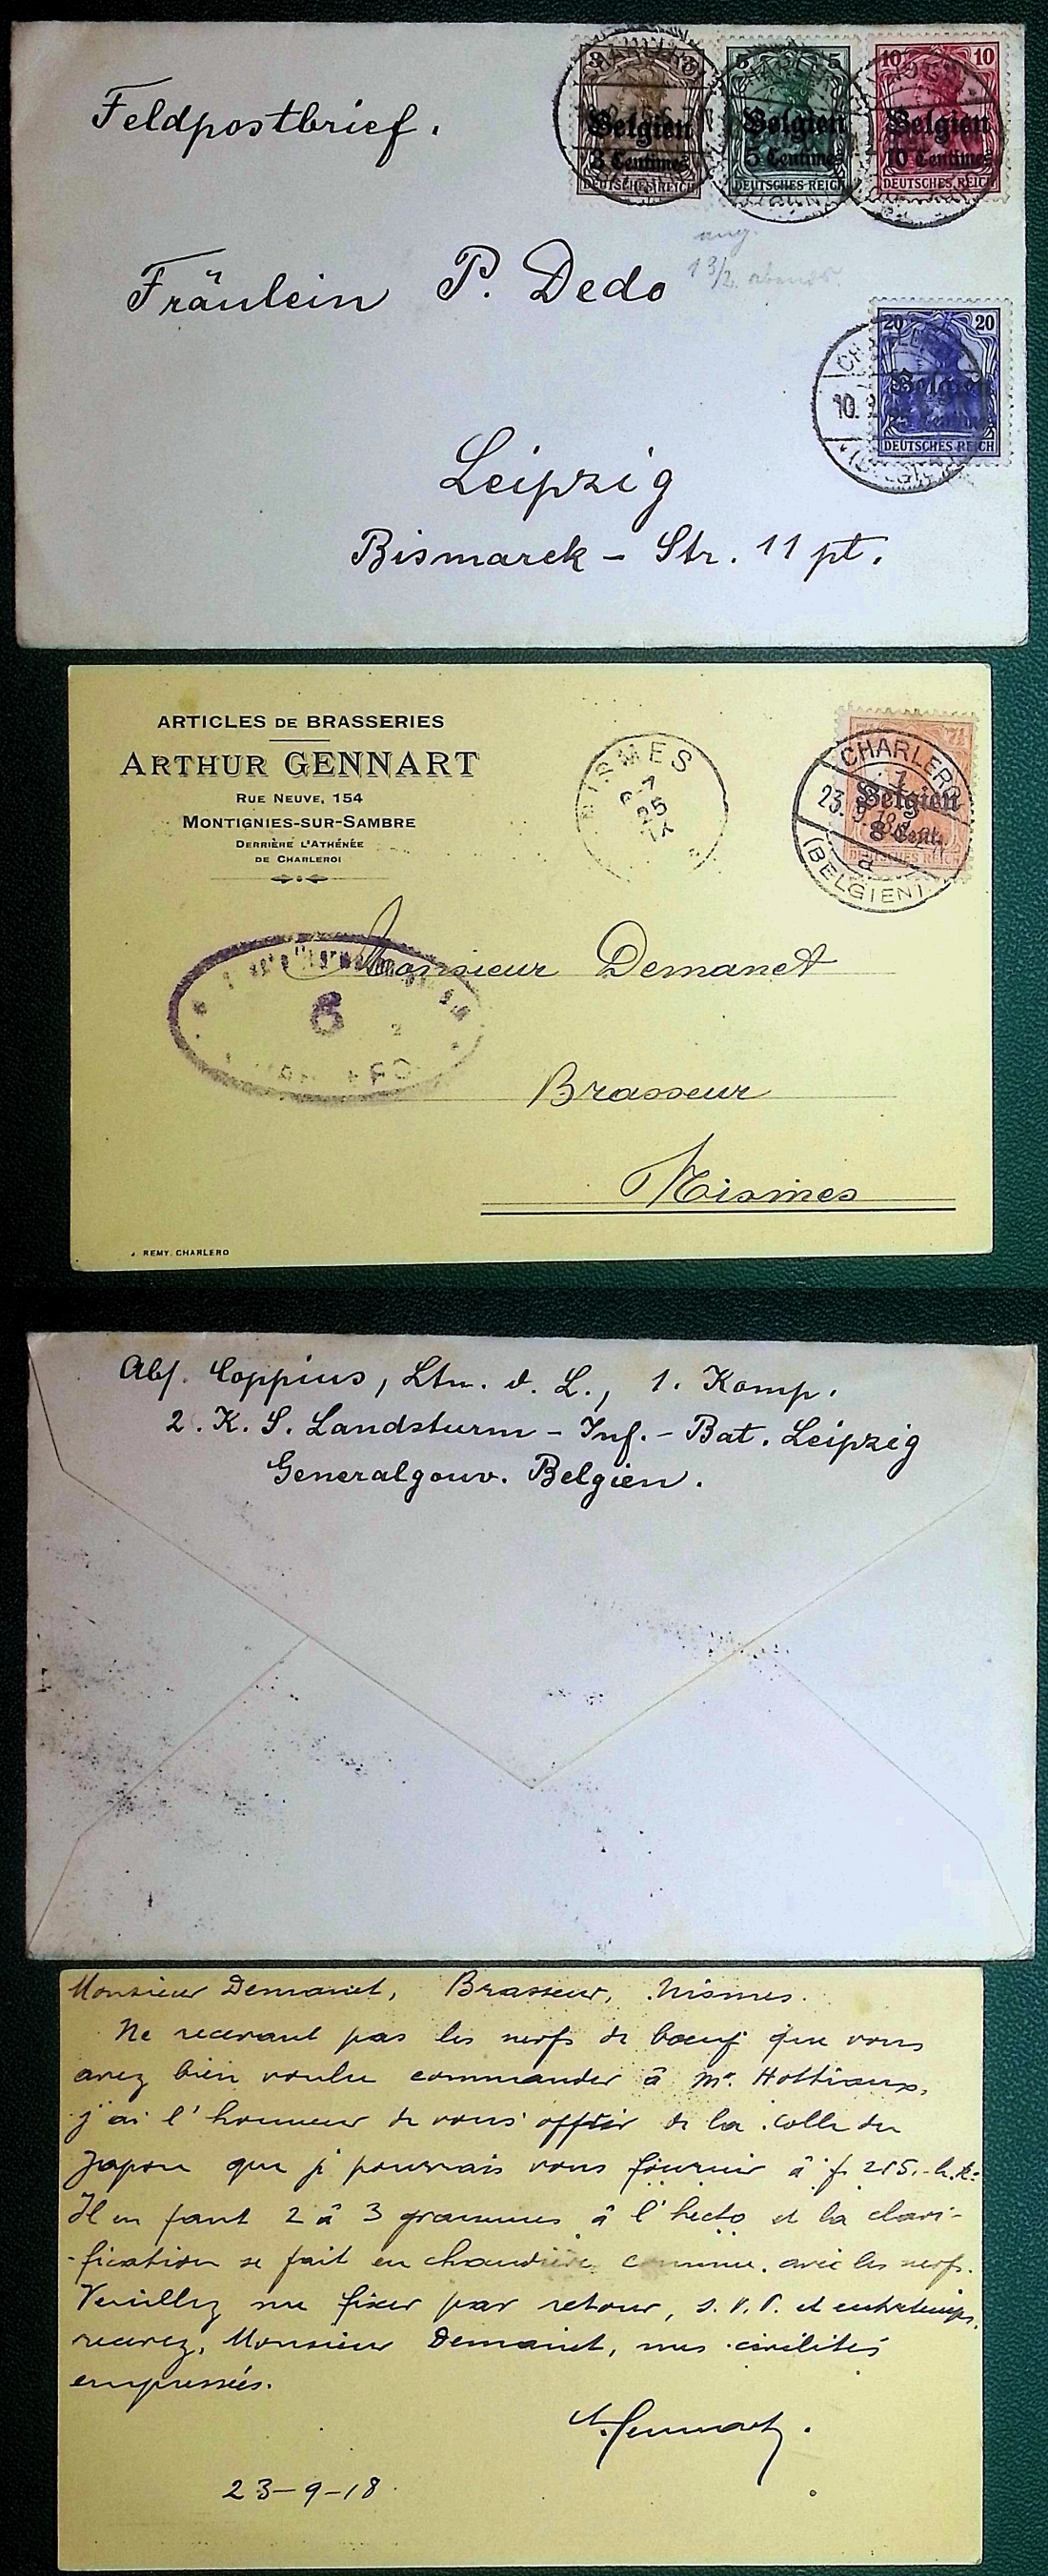 Feldpostbrief.
3
Belgien
3 Centimes
DEUTSCHES REICH
5 5
Belgien
5 Centimes
DEUTSCHES REICH
10 10
Belgien
10 Centimes
DEUTSCHES REICH
ang.
abends
Fräulein P. Dedo
20 20
Belgien
25 Centimes
DEUTSCHES REICH
10.
Leipzig
Bismarck - Str. 11 pt.
ARTICLES DE BRASSERIES
ARTHUR GENNART
RUE NEUVE, 154
MONTIGNIES-SUR-SAMBRE
DERRIÈRE L'ATHÉNÉE
DE CHARLEROI
25
IX
7½
Belgien
8 Cent.
DEUTSCHES REICH
CHARLEROI
23. 9. 18
a
(BELGIEN)
6
Monsieur Demanet
Brasseur
Nismes
J. REMY. CHARLERO
Abs. Coppius, Ltn. d. L., 1. Komp.
2. K. S. Landsturm - Inf. - Bat. Leipzig
Generalgouv. Belgien.
Monsieur Demanet, Brasseur, Nismes.
Ne recevant pas les nerfs de bœuf que vous
avez bien voulu commander à Mr. Hottiaux,
j'ai l'honneur de vous offrir de la colle du
Japon que je pourrais vous fournir à f. 215.- le k:
Il en faut 2 à 3 grammes à l'hecto et la clari-
-fication se fait en chaudière comme avec les nerfs.
Veuillez me fixer par retour, s. V. P. et entretemps,
recevez, Monsieur Demanet, mes civilités
empressées.
A. Gennart.
23-9-18